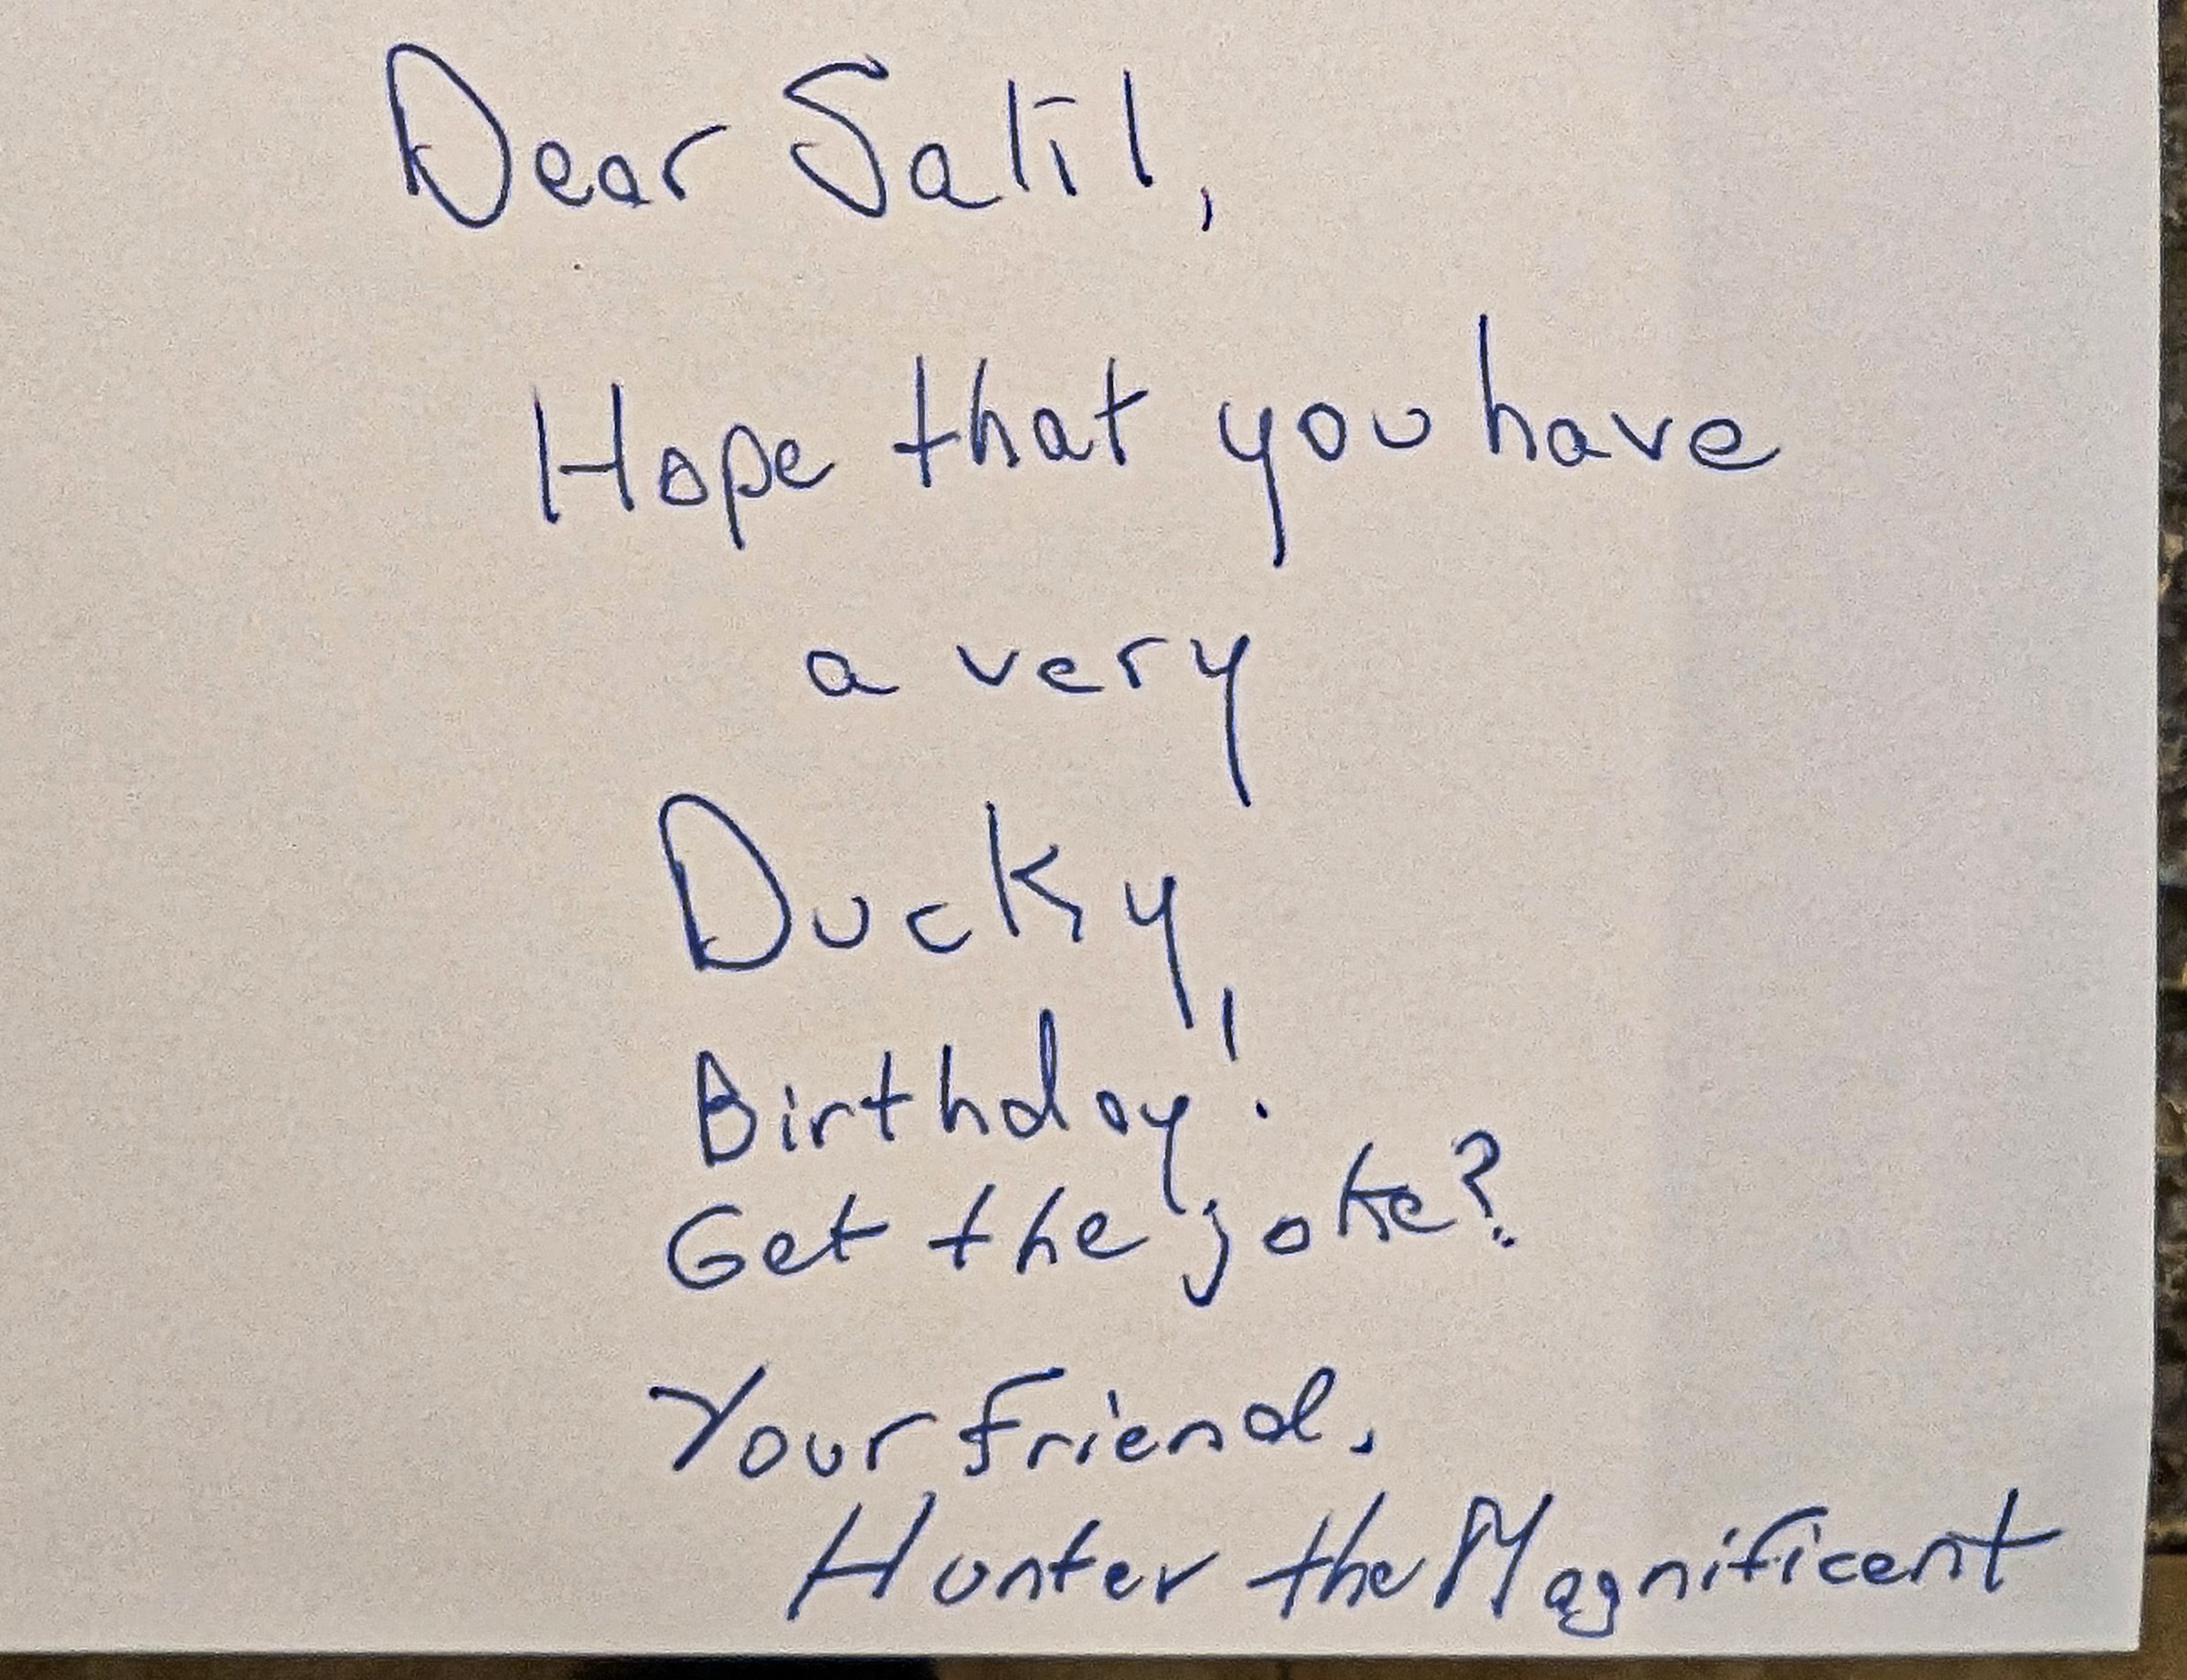 Dear Salil,
Hope that you have
a very
Ducky
Birthday!
Get the joke?
Your friend,
Hunter the Magnificent